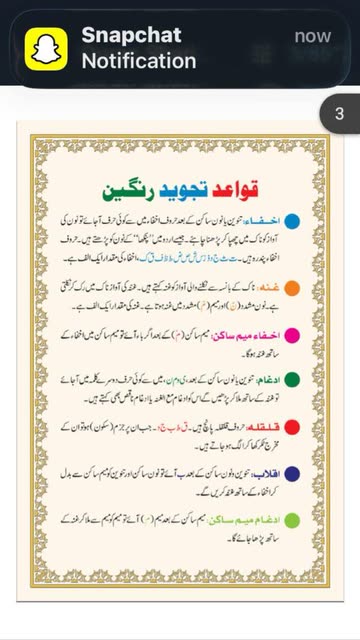 Snapchat
now
Notification
3
قواعد تجوید رنگین
اخفاء: تنوین یا نون ساکن کے بعد حروف اخفاء میں سے کوئی حرف آ جائے تو نون کی
آواز کو ناک میں چھپا کر پڑھنا چاہئے۔ جیسے اردو میں "پنکھا" کے نون کو پڑھتے ہیں۔ حروف
اخفاء پندرہ ہیں۔ ت ث ج د ذ ز س ش ص ض ط ظ ف ق ک، اخفاء کی مقدار ایک الف ہے۔
غنہ: ناک کے بانسہ سے نکلنے والی آواز کو غنہ کہتے ہیں۔ غنہ کی آواز ناک میں رک کر نکلتی
ہے۔ نون مشدد (نّ) اور میم (مّ) مشدد میں غنہ ہوتا ہے۔ غنہ کی مقدار ایک الف ہے۔
اخفاء میم ساکن: میم ساکن (مْ) کے بعد اگر با آئے تو میم ساکن میں اخفاء کے
ساتھ غنہ ہوگا۔
ادغام: تنوین یا نون ساکن کے بعد، ی و م ن، میں سے کوئی حرف دوسرے کلمہ میں آجائے
تو غنہ کے ساتھ ملا کر پڑھیں گے اس کو ادغام مع الغنہ یا ادغام ناقص بھی کہتے ہیں۔
قلقلہ: حروف قلقلہ پانچ ہیں۔ ق ط ب ج د۔ جب ان پر جزم (سکون) ہو تو ان کے
مخرج ٹکر کھا کر الگ ہو جاتے ہیں۔
اقلاب: تنوین و نون ساکن کے بعد ب آئے تو نون ساکن اور تنوین کو میم ساکن سے بدل
کر اخفاء کے ساتھ غنہ کریں گے۔
ادغام میم ساکن: میم ساکن کے بعد میم (مْ) آئے تو میم کو میم سے ملا کر غنہ کے
ساتھ پڑھا جائے گا۔